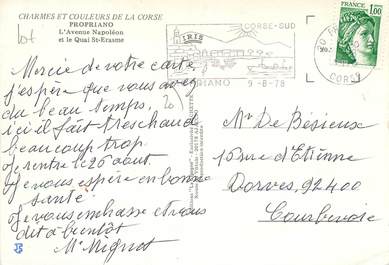 CHARMES ET COULEURS DE LA CORSE
PROPRIANO
L'Avenue Napoléon
et le Quai St-Erasme
CORSE-SUD
IRIS
PROPRIANO
9-8-78
CORSE
1,00
Mercie de votre carte
j'espère que vous avez
du beau temps,
ici il fait très chaud
beaucoup trop.
Je rentre le 26 août.
Je vous espère en bonne
santé
Je vous embrasse et vous
dit à bientôt
Mr Mignot
Mr De Bésieux
16 rue d'Etienne
Dorves, 92400
Courbevoie